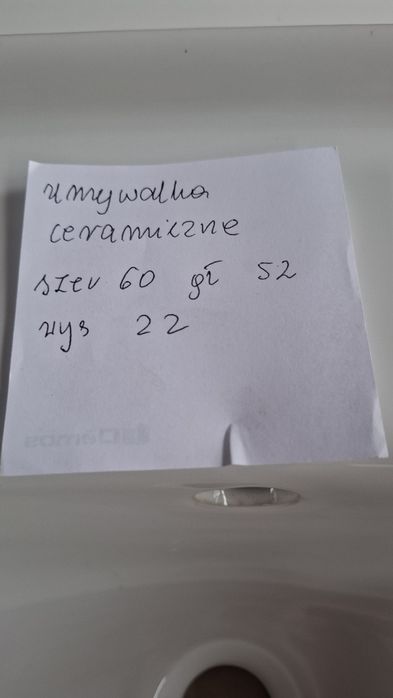 umywalka
ceramiczne
szer 60 gł 52
wys 22